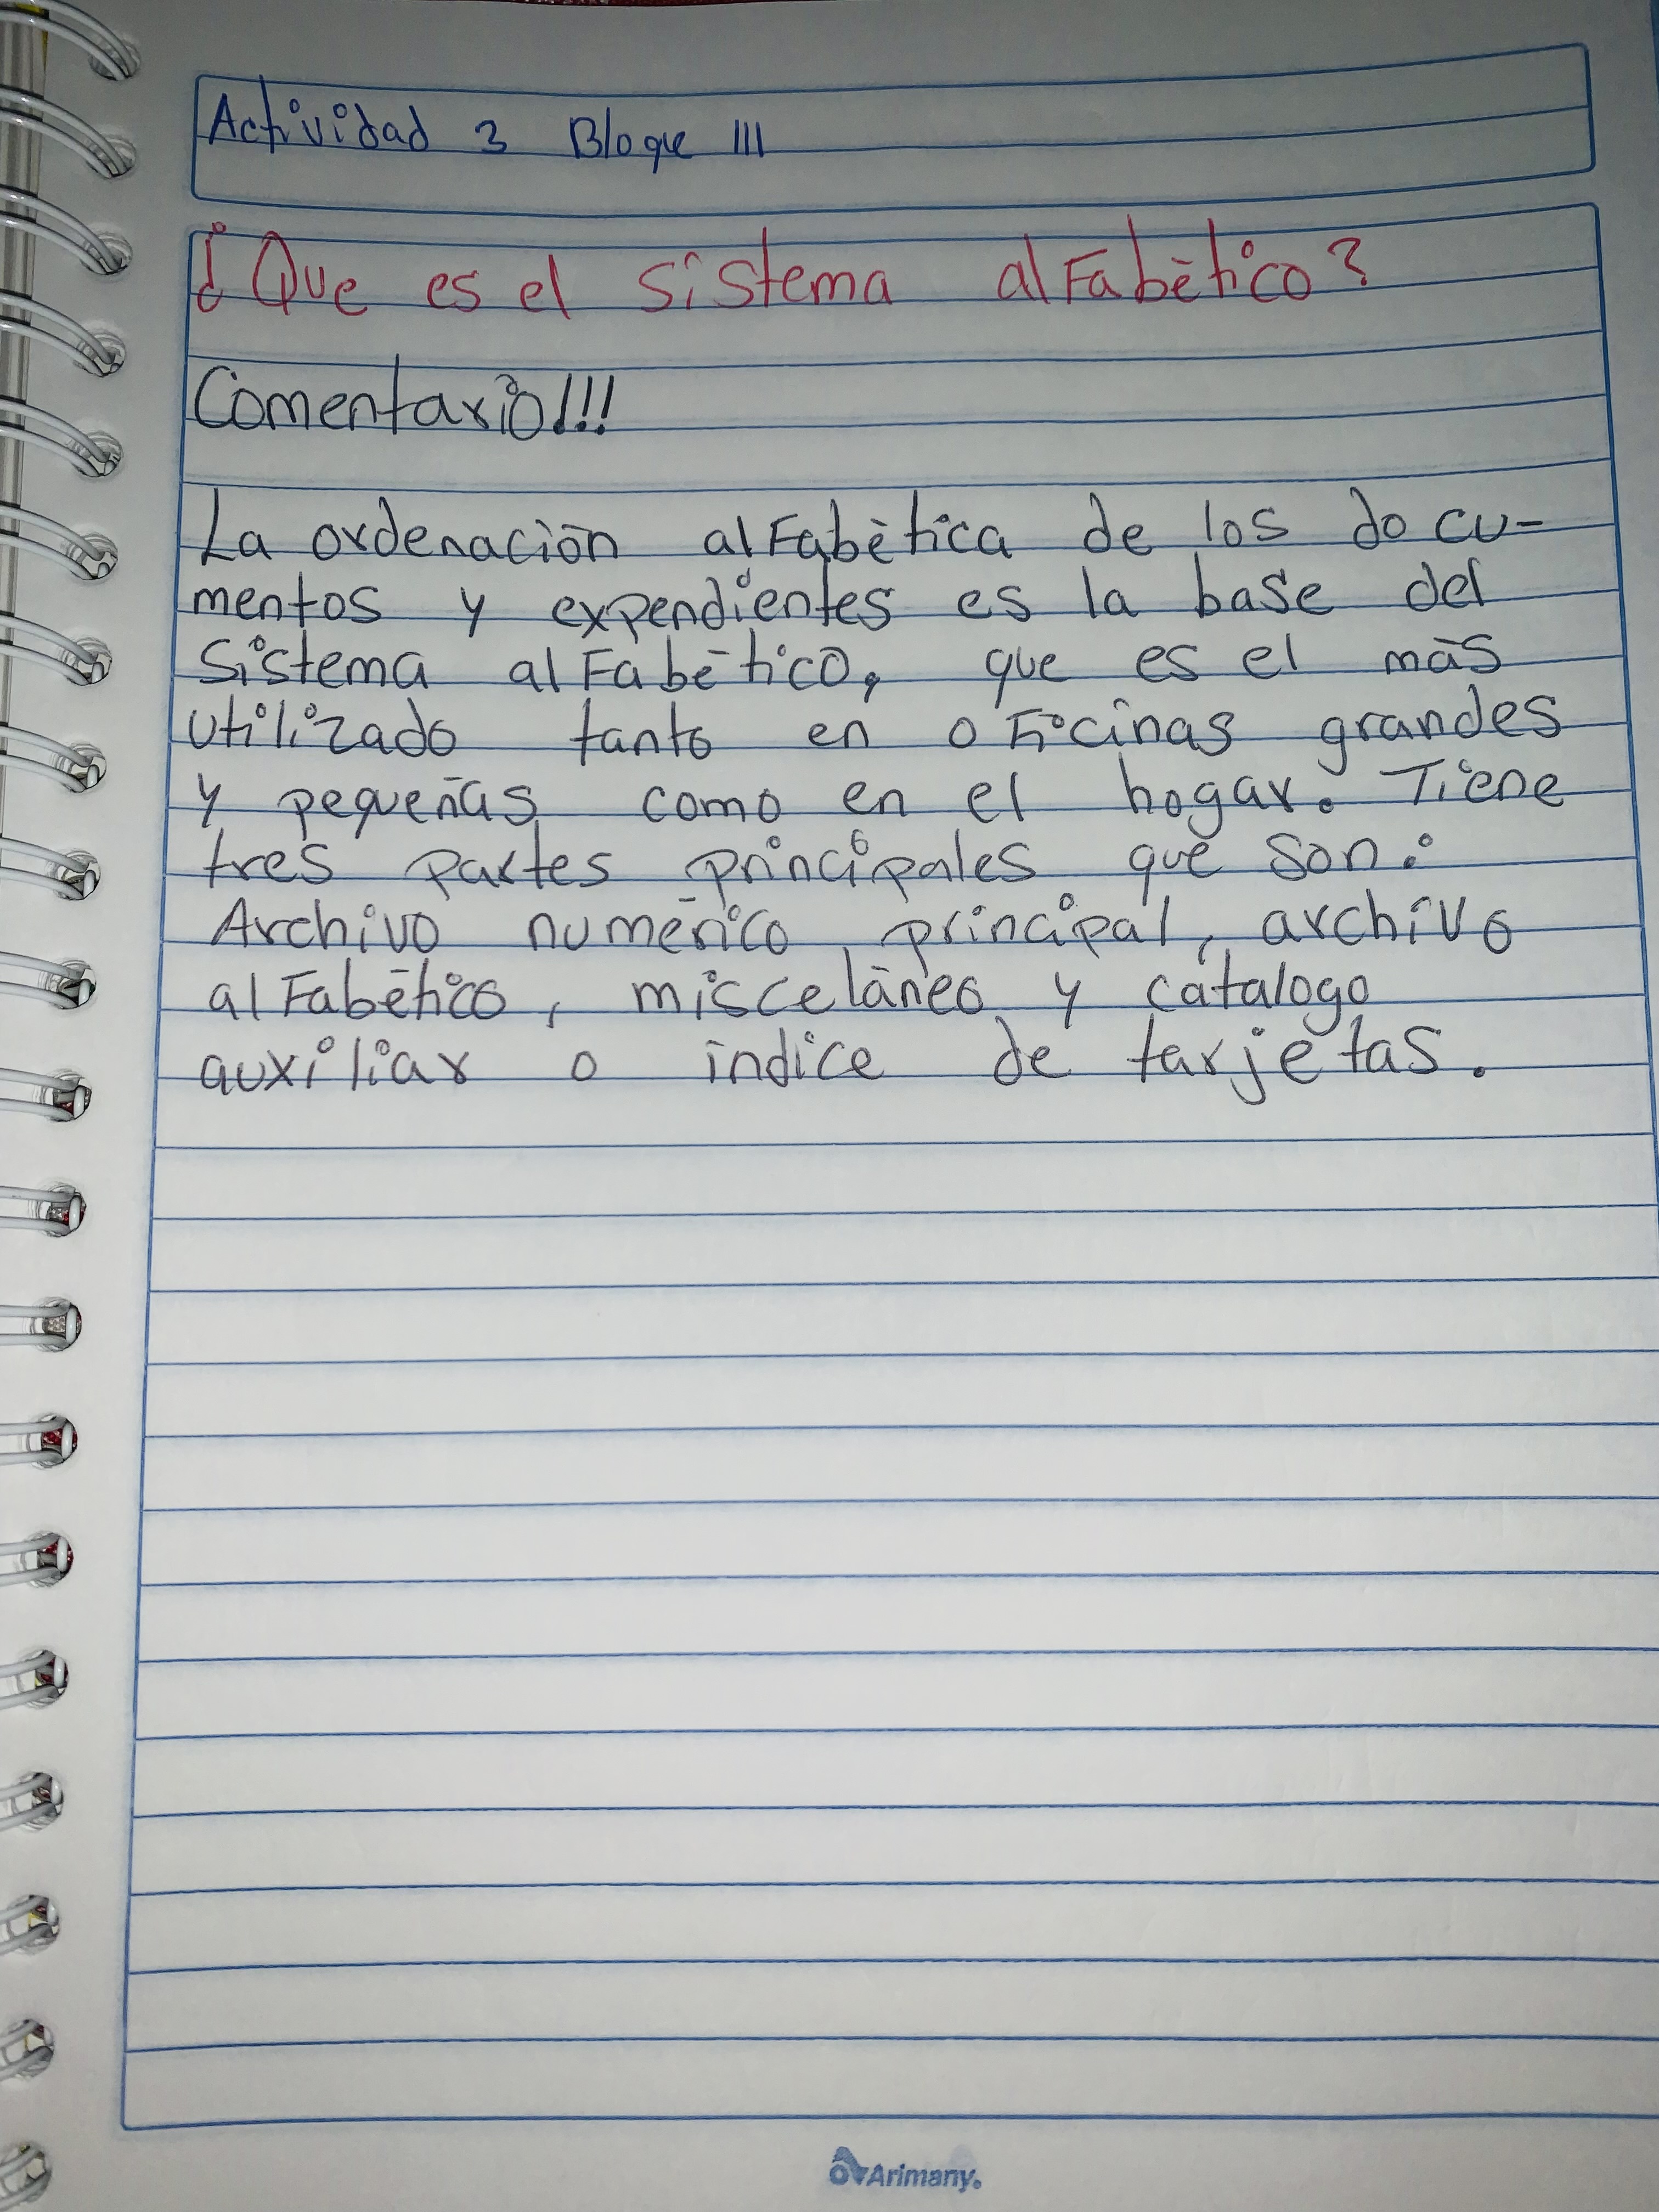 Actividad 3 Bloque III
¿Que es el sistema alfabético?
Comentario!!!
La ordenación alfabética de los docu-
mentos y expendientes es la base del
sistema alfabético, que es el más
utilizado tanto en oficinas grandes
y pequeñas como en el hogar. Tiene
tres partes principales que son:
Archivo numérico principal, archivo
alfabético, misceláneo y cátalogo
auxiliar o indice de tarjetas.
Arimany.